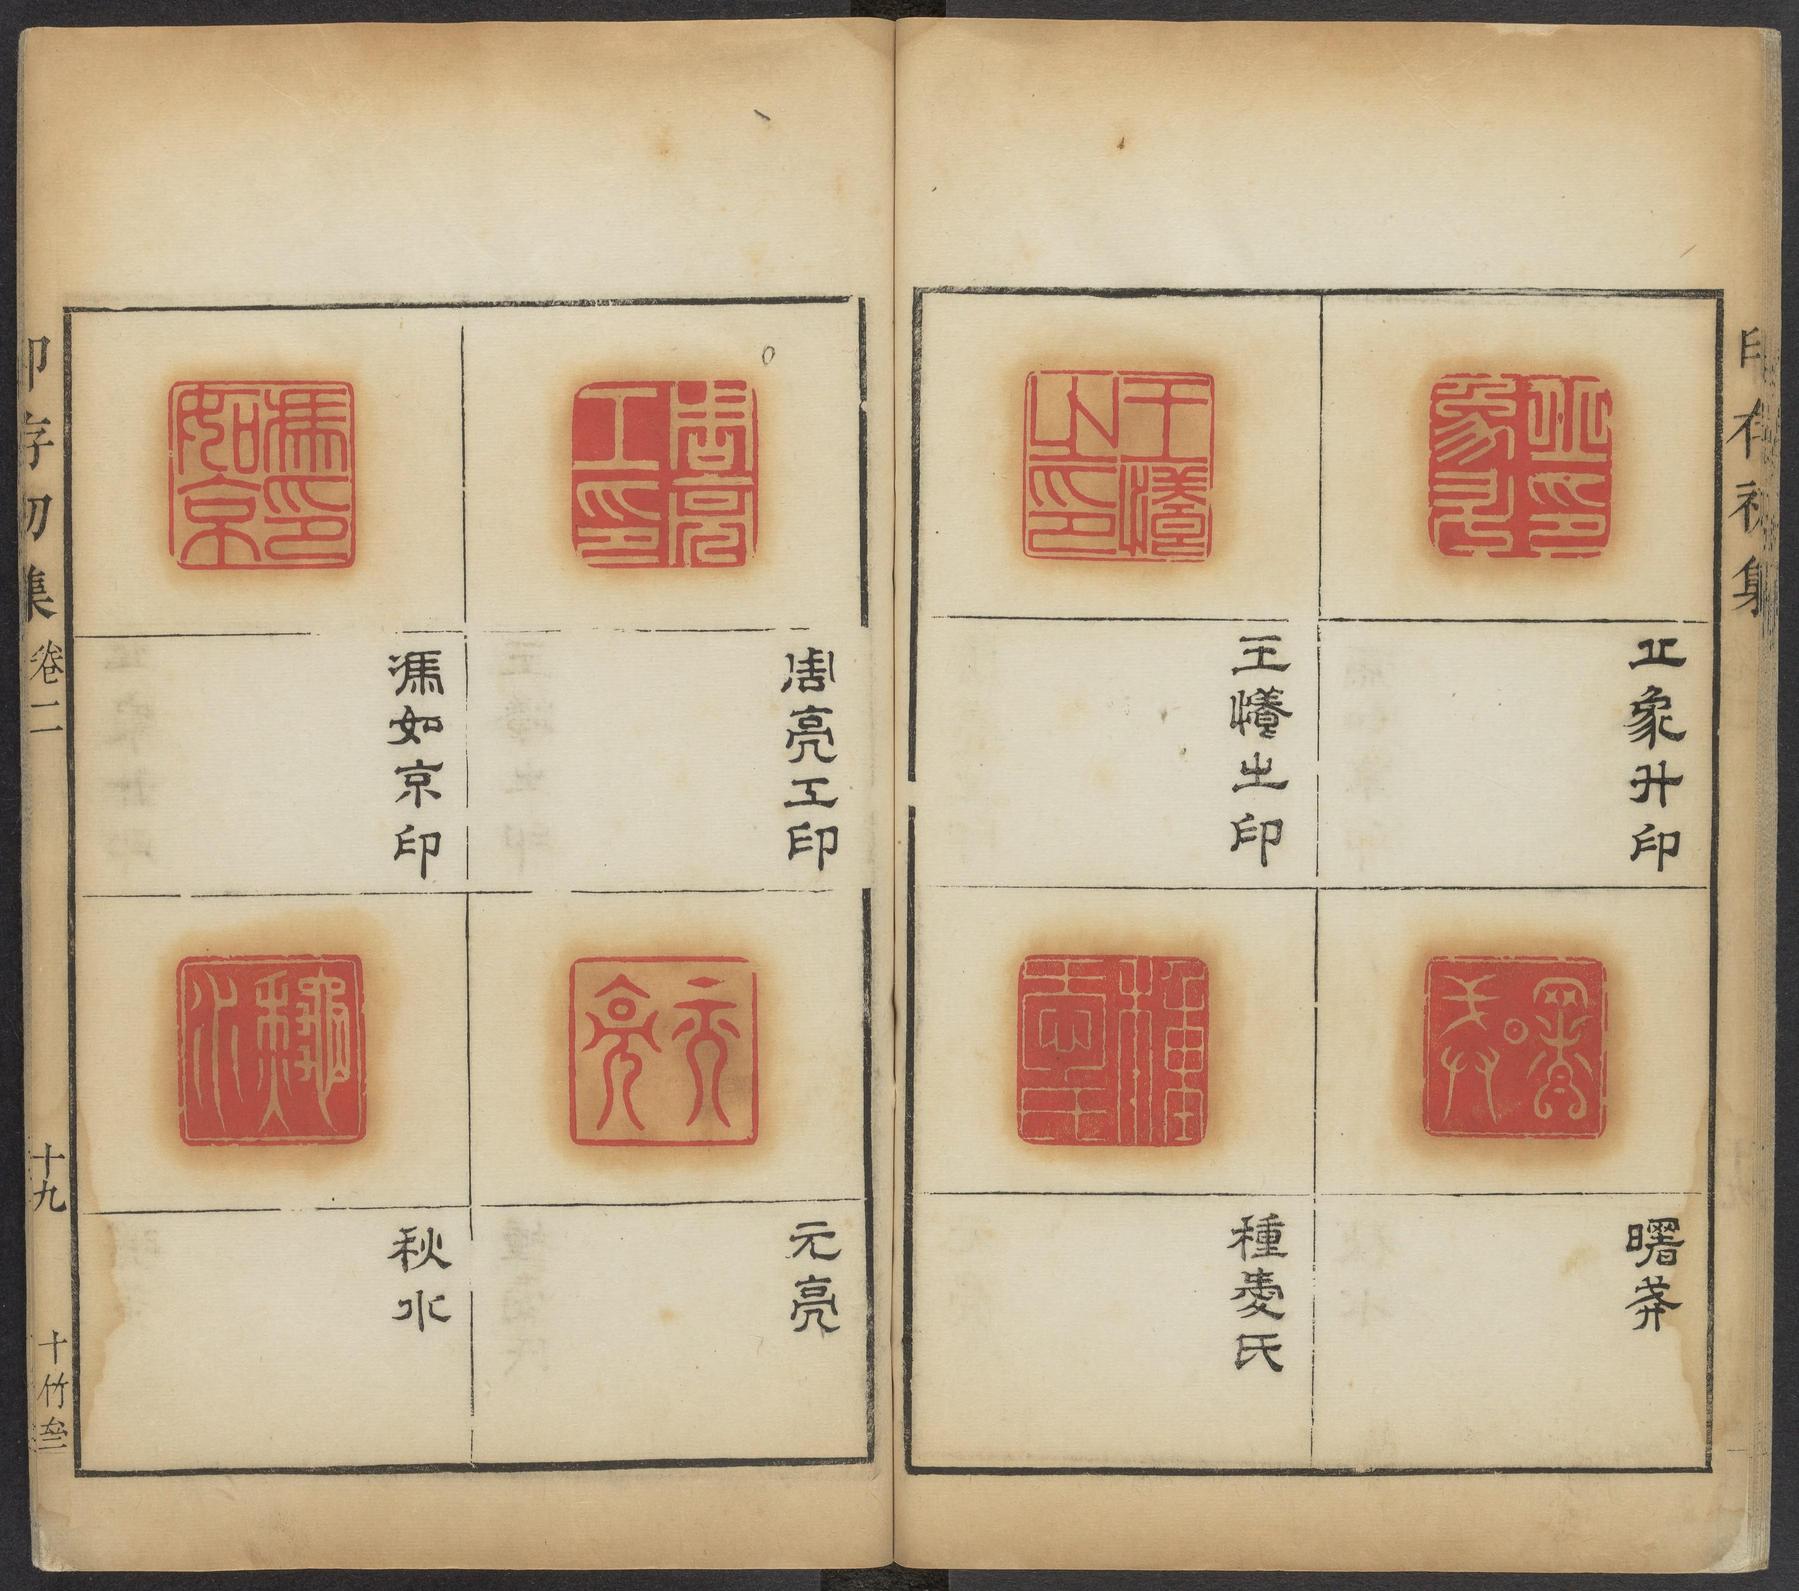 印存初集
丘象升印
王㦥之印
曙莽
種憂氏
周亮工印
馮如京印
元亮
秋水
印存初集
卷二
十九
十竹